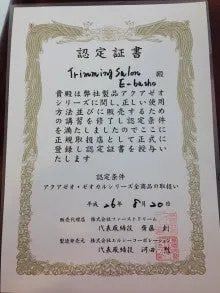 認定証書
Trimming Salon
E-basho 殿
貴殿は弊社製品アクアゼオ
シリーズに関し、正しい使用
方法並びに販売するため
の講習を修了し認定条件
を満たしましたのでここに
正規取扱店として正式に
登録し認定証書を授与い
たします
認定条件
アクアゼオ・ゼオカルシリーズ全商品の取扱い
平成 26年 8月 20日
販売代理店 株式会社ファーストドリーム
代表取締役 齋藤 剣
製造発売元 株式会社エルシーコーポレーション
代表取締役 河田